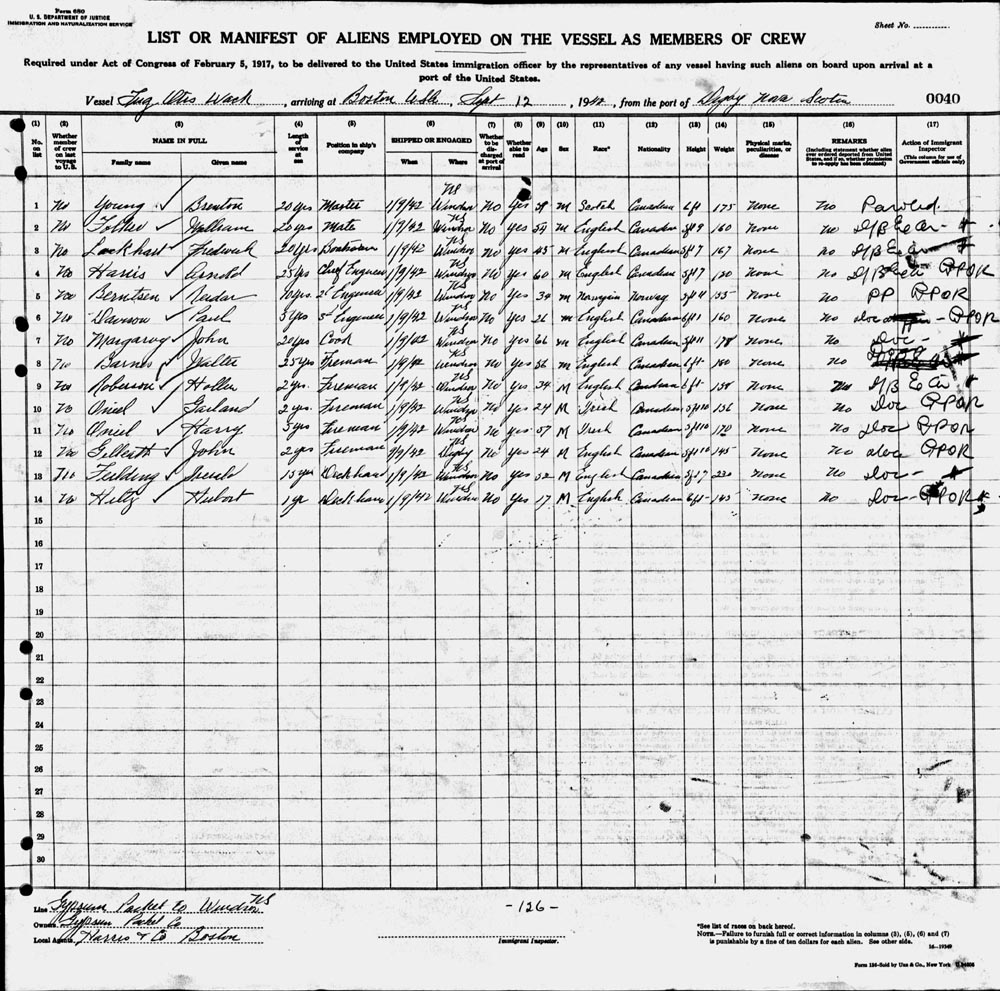 Form 680
U. S. DEPARTMENT OF JUSTICE
IMMIGRATION AND NATURALIZATION SERVICE
Sheet No.
LIST OR MANIFEST OF ALIENS EMPLOYED ON THE VESSEL AS MEMBERS OF CREW
Required under Act of Congress of February 5, 1917, to be delivered to the United States immigration officer by the representatives of any vessel having such aliens on board upon arrival at a
port of the United States.
Vessel Tug Otis Wack, arriving at Boston, Sept 12, 1942, from the port of Digby Nova Scotia 0040
(1) (2) (3) (4) (5) (6) (7) (8) (9) (10) (11) (12) (13) (14) (15) (16) (17)
No. on list
Whether member of crew on last voyage to U.S.
NAME IN FULL
Family name Given name
Length of service at sea
Position in ship's company
SHIPPED OR ENGAGED
When Where
Whether to be discharged at port of arrival
Whether able to read
Age
Sex
Race*
Nationality
Height
Weight
Physical marks, peculiarities, or disease
REMARKS
(Including statement whether alien ever ordered deported from United States, and if so, whether permission to re-apply has been obtained)
Action of Immigrant Inspector
(This column for use of Government officials only)
1 No Young Brenton 20 yrs Master 1/9/42 Windsor NS No Yes M Scotch Canadian 6ft 175 None No Paroled
2 No William 20 yrs Mate 1/9/42 Windsor NS No Yes 54 M English Canadian 5ft9 160 None No
3 No Lockhart Fredrick 20 yrs 1/9/42 Windsor NS No Yes 45 M English Canadian 5ft7 167 None No
4 No Harris Arnold 25 yrs Chief Engineer 1/9/42 Windsor NS No Yes 60 M English Canadian 5ft7 None No
5 No Berntsen Reidar 10 yrs 2nd Engineer 1/9/42 Windsor NS No Yes 34 M Norwegian Norway None No PP
6 No Dawson Paul 5 yrs Engineer 1/9/42 Windsor NS No Yes 26 M English Canadian 160 None No Doc
7 No John 20 yrs Cook 1/9/42 Windsor NS No Yes 66 M English Canadian 5ft11 178 None No Doc
8 No Barnes Walter 25 yrs Fireman 1/9/42 Windsor NS No Yes 56 M English Canadian 6ft None No
9 No Roberson Hollis 2 yrs Fireman 1/9/42 Windsor NS No Yes 34 M English Canadian 6ft 158 None No
10 No Oniel Garland 2 yrs Fireman 1/9/42 Windsor NS No Yes 24 M Irish Canadian 5ft10 156 None No Doc
11 No Oniel Harry 5 yrs Fireman 1/9/42 Windsor NS No Yes 57 M Irish Canadian 5ft10 170 None No Doc
12 No John 2 yrs Fireman 9/9/42 Digby NS No Yes 24 M English Canadian 5ft10 145 None No Doc
13 No Fielding 15 yrs Deckhand 1/9/42 Windsor NS No Yes 52 M English Canadian 5ft7 220 None No Doc
14 No Hiltz Hubert 1 yr Deckhand 1/9/42 Windsor NS No Yes 17 M English Canadian 6ft 145 None No Doc
15
16
17
18
19
20
21
22
23
24
25
26
27
28
29
30
Line Gypsum Packet Co Windsor NS
Owners Gypsum Packet Co
Local Agents Harris & Co Boston
-126-
Immigrant Inspector.
*See list of races on back hereof.
NOTE.—Failure to furnish full or correct information in columns (3), (5), (6) and (7)
is punishable by a fine of ten dollars for each alien. See other side.
16—19349
Form 126-Sold by Unz & Co., New York